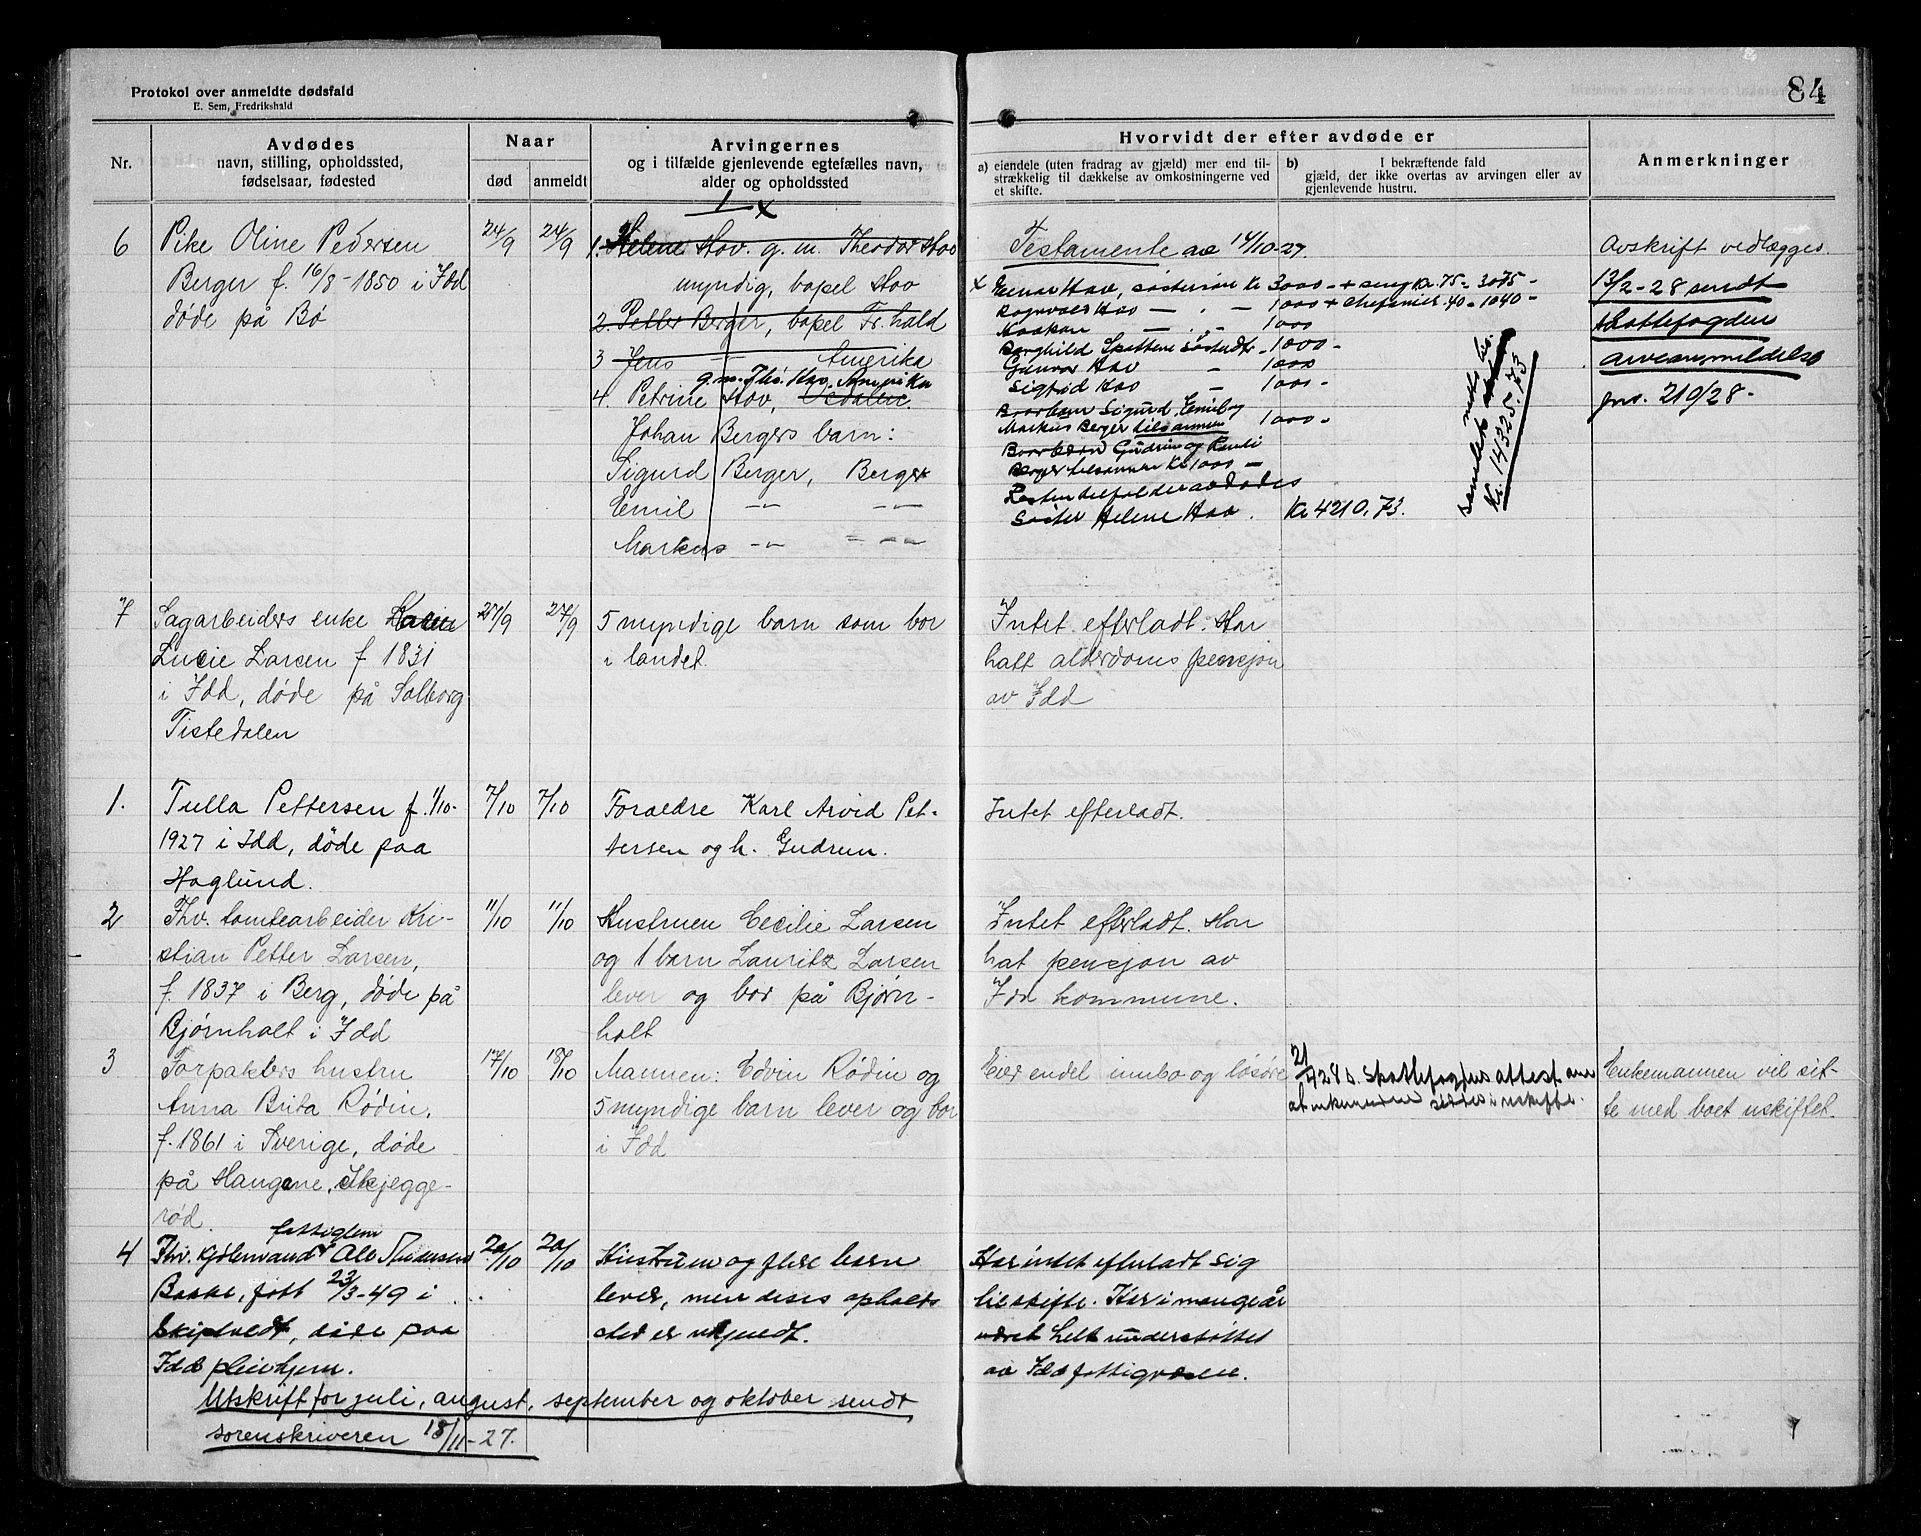 84
Protokol over anmeldte dødsfald
E. Sem, Fredrikshald
Nr.
Avdødes
navn, stilling, opholdssted,
fødselsaar, fødested
Naar
død
anmeldt
Arvingernes
og i tilfælde gjenlevende egtefælles navn,
alder og opholdssted
Hvorvidt der efter avdøde er
a) eiendele (uten fradrag av gjæld) mer end til-
strækkelig til dækkelse av omkostningerne ved
et skifte.
b) I bekræftende fald
gjæld, der ikke overtas av arvingen eller av
gjenlevende hustru.
Anmerkninger
6
Pike Oline Pedersen
Berger f. 16/8-1850 i Idd
døde på Bø
24/9
24/9
1 x
1. Helene Hov. g.m. Theodor Hov
myndig, bopel Hov
2. Petter Berger, bopel Fr.hald
3 Jens — Amerika
g.m. Ths. Hov. Amerika
4. Petrine Hov,
Johan Bergers barn:
Sigurd Berger, Berger
Emil -"- -"-
Markus -"- = -"-
Testamente av 14/10-27.
x Einar Hov, søstersøn Kr 3000 - + seng Kr. 75 - 3075 -
Rognvald Hov — " — 1000 + chefonier. 40 - 1040 -
Haakon — " - 1000
Borghild Skotten søsterdtr - 1000 -
Gunvor Hov " 1000
Sigfrid Hov - 1000 -
Brorbarn Sigurd, Emil og
Markus Berger tilsammen 1000 -
Brorbarn Gudrun og Randi
Berger tilsammen Kr 1000 -
Resten tilfalder avdødes
søster Helene Hov. Kr 4210,73.
samlet netto
Kr. 14325.73
Avskrift vedlægges.
13/2-28 sendt
skattefogden
arveanmeldelse
jns. 219/28 -
7
Sagarbeiders enke
Lucie Larsen f 1831
i Idd, døde på Solborg
Tistedalen
27/9
27/9
5 myndige barn som bor
i landet.
Intet efterladt. Har
hatt alderdoms pensjon
av Idd
1.
Tulla Pettersen f. 1/10-
1927 i Idd, døde paa
Haglund.
7/10
7/10
Foraldre Karl Arvid Pet-
tersen og h. Gudrun.
Intet efterladt.
2
Fhv. tomtearbeider Kri-
stian Petter Larsen,
f. 1837 i Berg, døde på
Bjørnholt i Idd
11/10
11/10
Hustruen Cecilie Larsen
og 1 barn Lauritz Larsen
lever og bor på Bjørn-
holt
Intet efterladt. Har
hat pensjon av
Idd kommune.
3
Forpakters hustru
Anna Brita Rødin,
f. 1861 i Sverige, døde
på Haugene, Skjegge-
rød.
17/10
18/10
Mannen: Edvin Rødin og
5 myndige barn lever og bor
i Idd
Eier endel innbo og løsøre
21/4 28 s. skattefogdens attest om
at enkemannen sittes i uskifte.
Enkemannen vil sit-
te med boet uskiftet.
4
fattiglem
Fhv. kjølemand Ole Andersen
Bakke, født 23/3-49 i
Skiptvedt, døde paa
Idd pleiehjem.
20/10
20/10
Hustrum og flere barn
lever, men deres opholds
sted er ukjendt.
Har intet efterladt sig
til skifte. Har i mange år
været helt understøttet
av Idd fattigvæsen.
Utskrift for juli, august, september og oktober sendt
sorenskriveren 18/11-27.